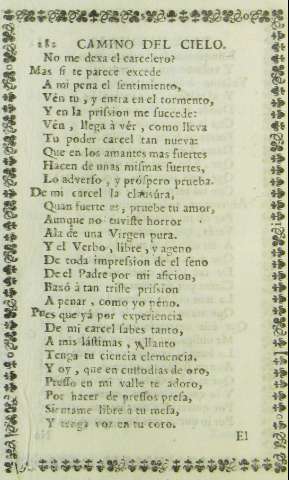 282 CAMINO DEL CIELO.
No me dexa el carcelero?
Mas si te parece excede
A mi pena el sentimiento,
Vén tu, y entra en el tormento,
Y en la prission me succede:
Vén, llega à vér, como lleva
Tu poder carcel tan nueva:
Que en los amantes mas fuertes
Hacen de unas mismas suertes,
Lo adverso, y próspero prueba.
De mi carcel la clausúra,
Quan fuerte es, pruebe tu amor,
Aunque no tuviste horror
A la de una Virgen pura.
Y el Verbo, libre, y ageno
De toda impression de el seno
De el Padre por mi aficion,
Baxó à tan triste prission
A penar, como yo peno.
Pues que yá por experiencia
De mi carcel sabes tanto,
A mis lástimas, y llanto
Tenga tu ciencia clemencia.
Y oy, que en custodias de oro,
Presso en mi valle te adoro,
Por hacer de pressos presa,
Sientame libre à tu mesa,
Y tenga voz en tu coro.
El